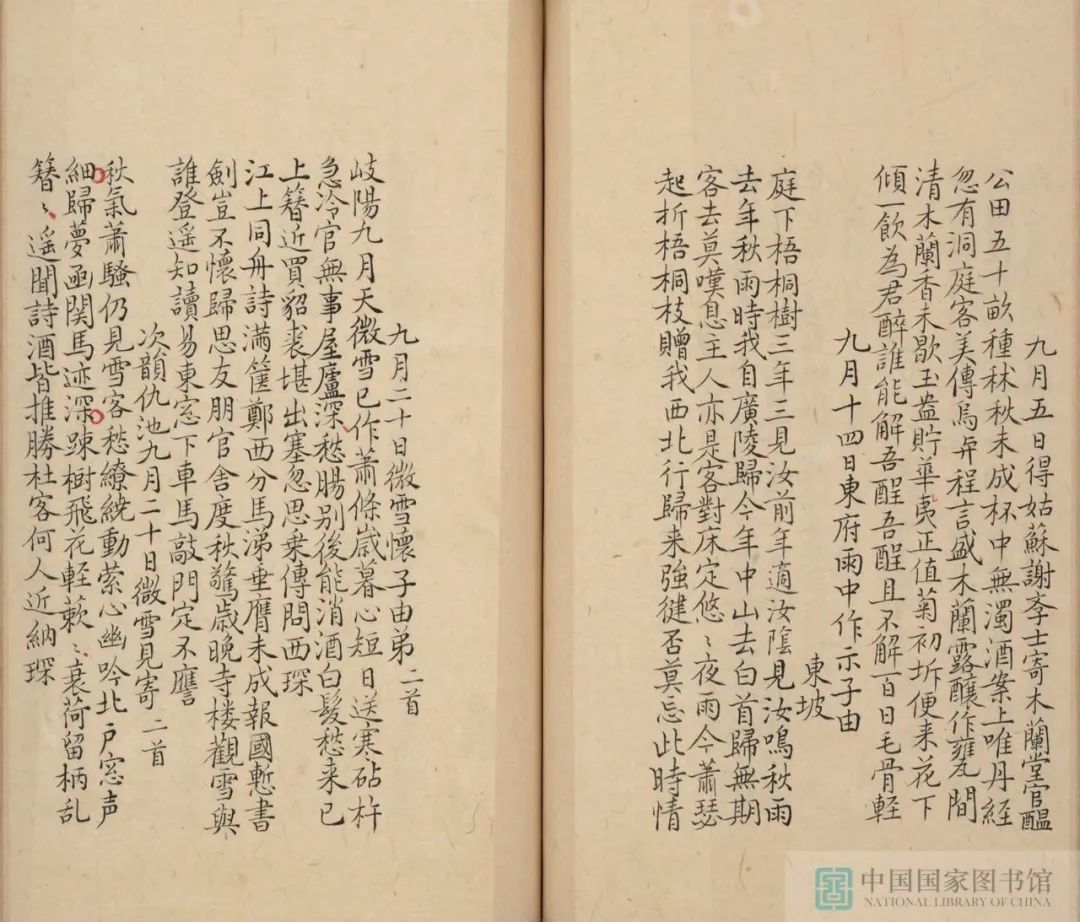 九月五日得姑蘇謝李士寄木蘭堂官醖
公田五十畝種秫秋未成杯中無濁酒案上唯丹經
忽有洞庭客美傳烏弁程言盛木蘭露釀作甕瓦間
清木蘭香未歇玉盎貯華夷正值菊初坼便来花下
傾一飲為君醉誰能解吾酲吾酲且不解百日毛骨輕
九月十四日東府雨中作示子由
東坡
庭下梧桐樹三年三見汝前年適汝隂見汝鳴秋雨
去年秋雨時我自廣陵歸今年中山去白首歸無期
客去莫嘆息主人亦是客對床定悠〻夜雨今蕭瑟
起折梧桐枝贈我西北行歸来強健否莫忘此時情
九月二十日微雪懷子由弟二首
岐陽九月天微雪已作蕭條歲暮心短日送寒砧杵
急冷官無事屋廬深愁腸别後能消酒白髮愁来已
上簪近買貂裘堪出塞忽思乗傳問西琛
江上同舟詩滿篋鄭西分馬涕垂膺未成報國慙書
劍豈不懷歸思友朋官舍度秋驚歲晚寺楼觀雪與
誰登遥知讀易東窓下車馬敲門定不譍
次韻仇池九月二十日微雪見寄二首
秋氣蕭騷仍見雪客愁繚繞動縈心幽吟北戶窓声
細歸夢凾関馬迹深踈樹飛花輊蔌〻衰荷留柄乱
簪〻遥聞詩酒皆推勝杜客何人近納琛
中国国家图书馆
NATIONAL LIBRARY OF CHINA